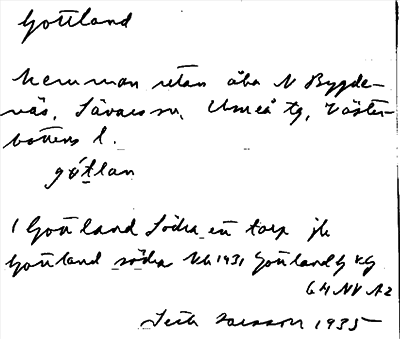 Gottland
hemman utan åbo N Bygde-
vås, Sävars sn, Umeå tg, Väster-
bottens l.
gótlan
( Gottland Södra en torp jb
Gottland södra Kb 1931 Gottland g kg
6 H NV A2
1935